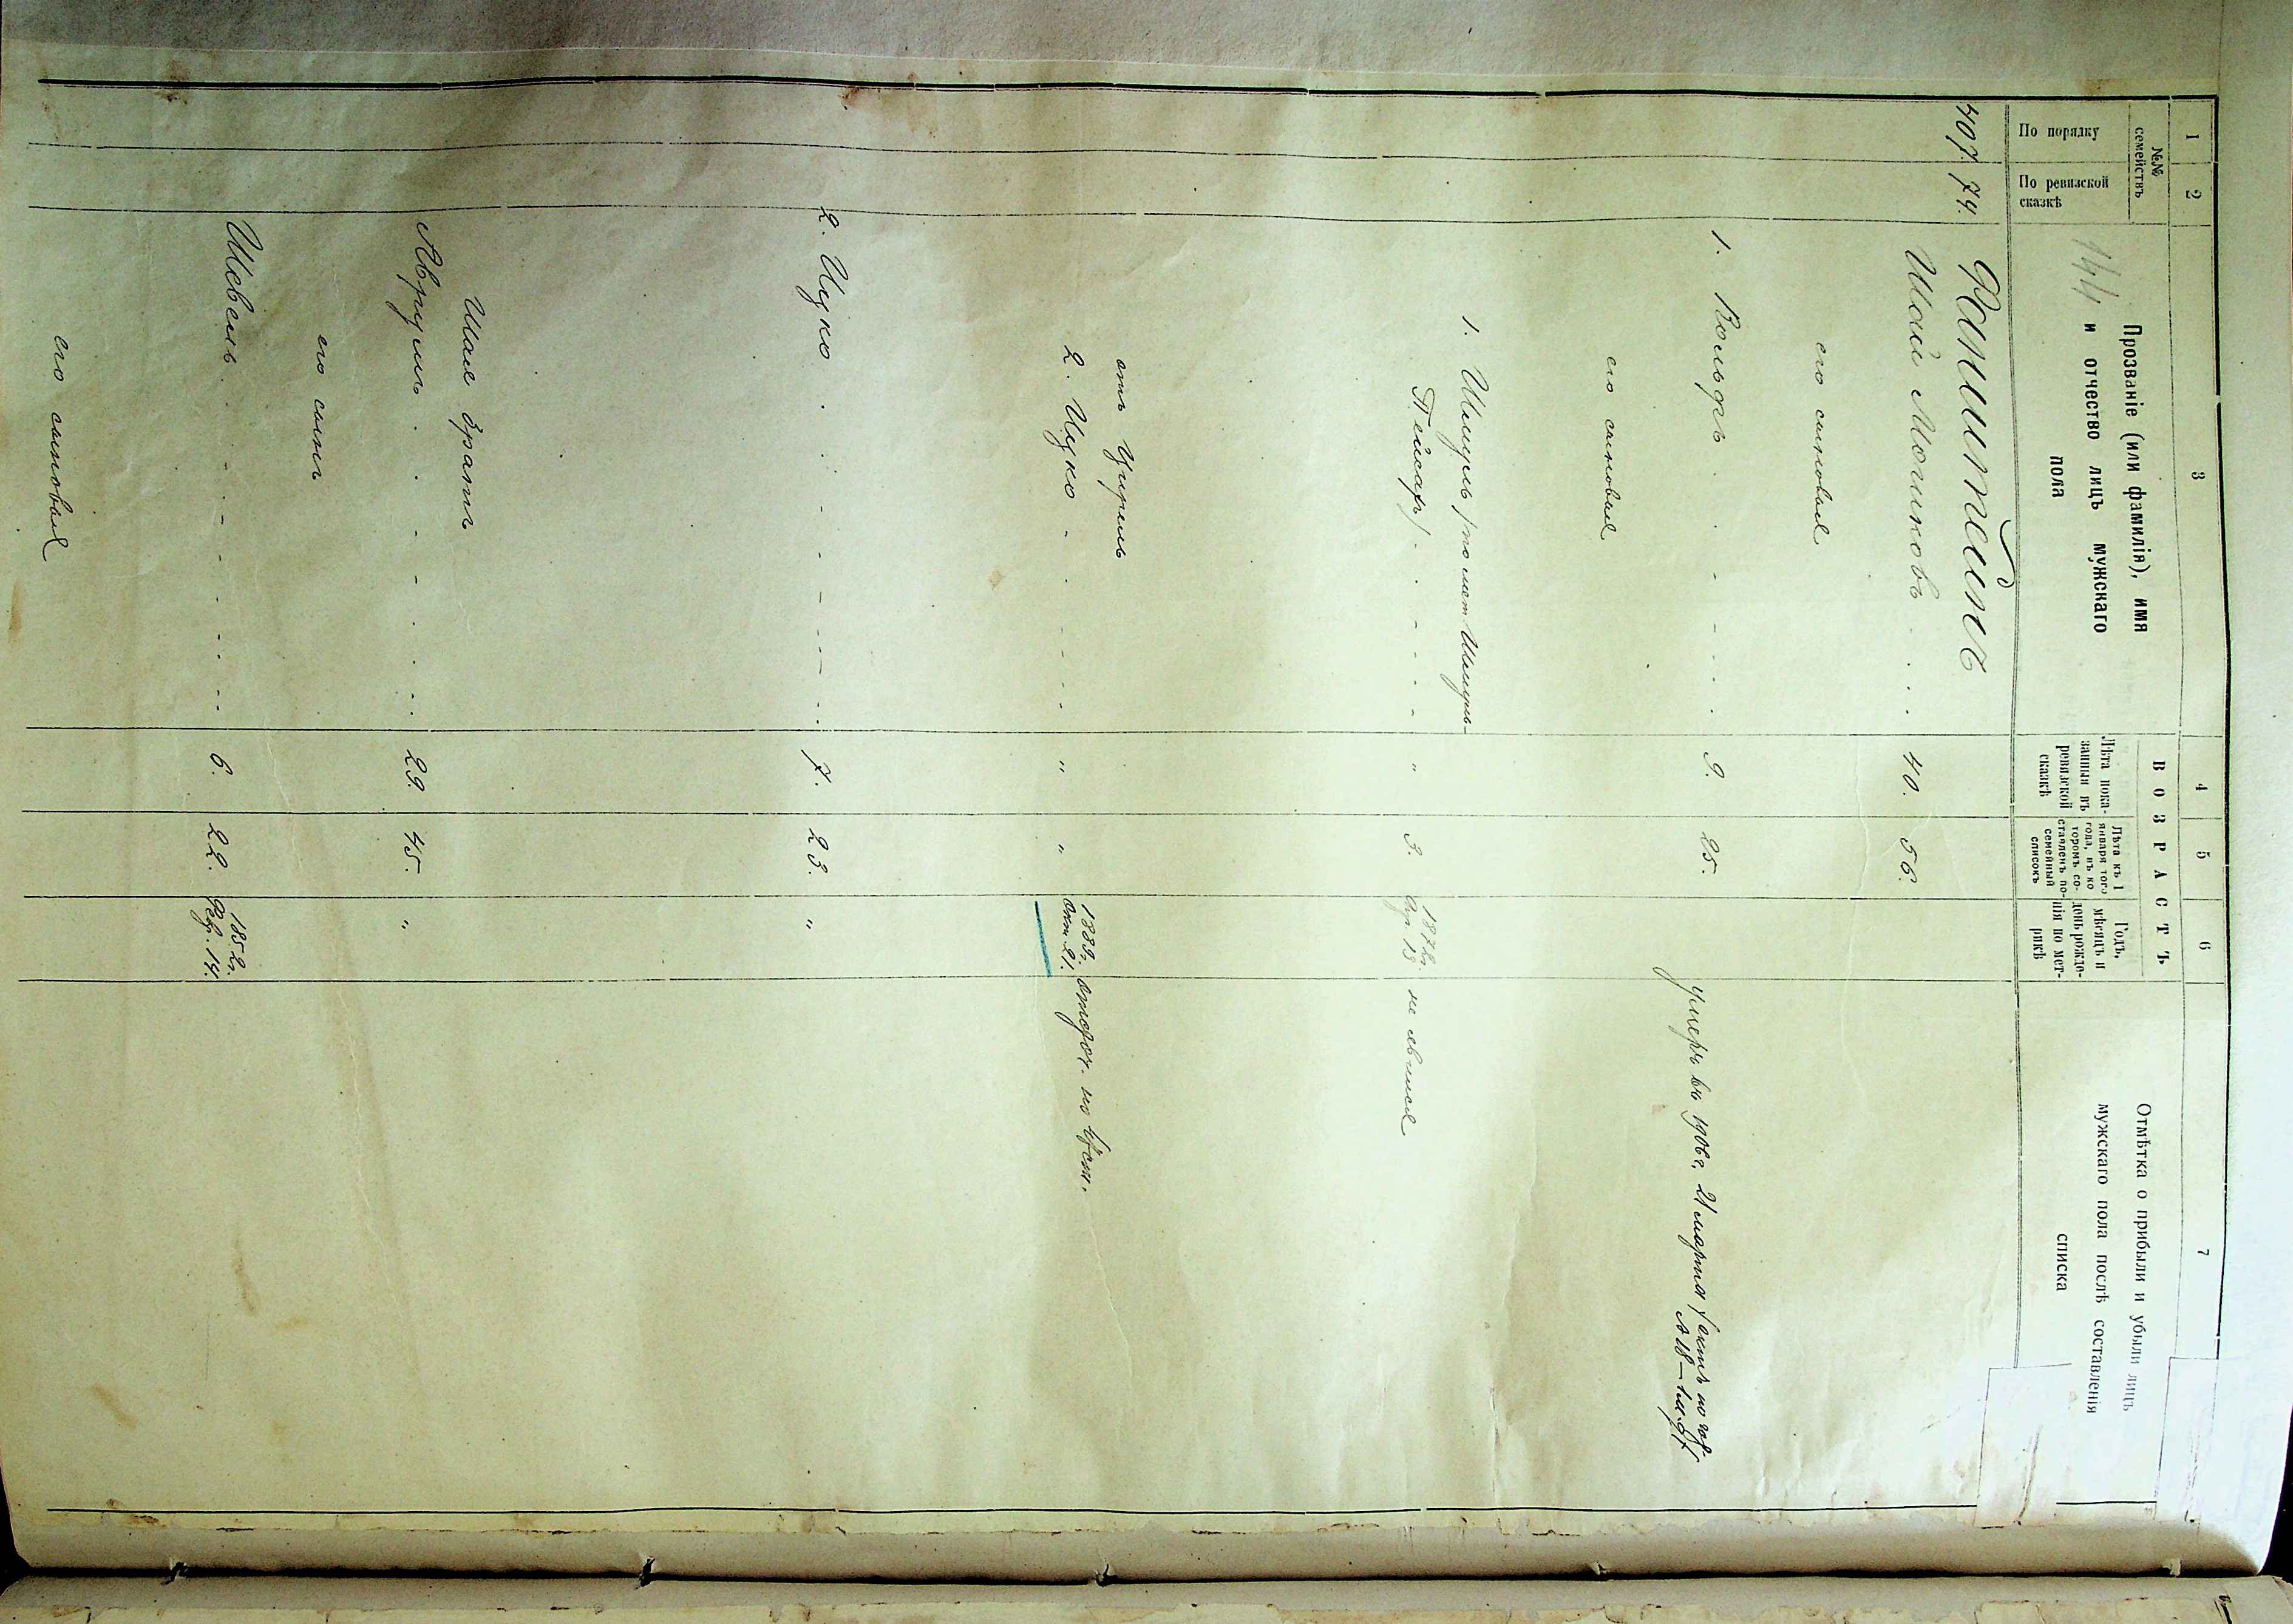 1 2 3 4 5 6 7
№№ семействъ
По порядку
По ревизской сказкѣ
Прозваніе (или фамилія), имя
и отчество лицъ мужскаго
пола
144
ВОЗРАСТЪ
Лѣта показанныя въ ревизской сказкѣ
Лѣта къ 1 января того года, въ которомъ составленъ посемейный списокъ
Годъ, мѣсяцъ и день рожденія по метрикѣ
Отмѣтка о прибыли и убыли лицъ
мужскаго пола послѣ составленія
списка
407. 74. Фанштейнъ
Шай Мошковъ 40. 56.
его сыновья
1. Вольфъ 9. 25. умеръ въ 1906 г. 21 марта
№ 18
его сыновья
1. Шмуль (по мет. Шмуль-
Пейсах) " 3. 1872 г. 13 не явился
отъ Цириль
2. Ицко " " 1882 г. окт. 21.
2. Ицко 7. 23. "
Шая братъ
Аврумъ 29. 45. "
его сынъ
Шевель 6. 22. 1852 г.
Фев. 14.
его сыновья